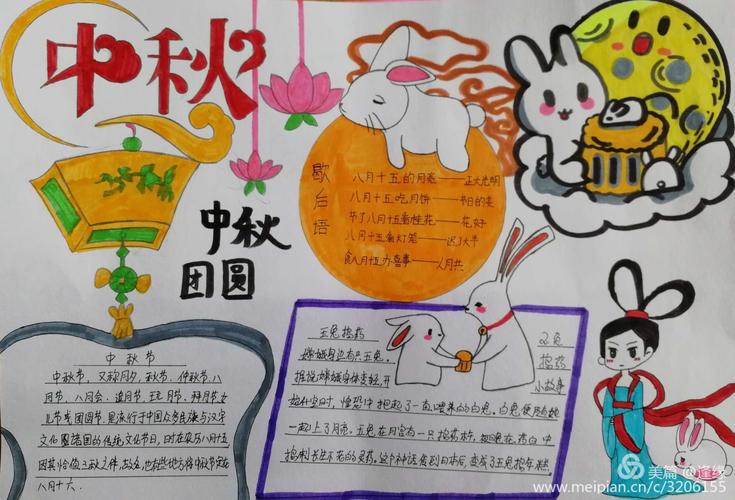 中秋
中秋
团圆
歇后语
八月十五的月亮——正大光明
八月十五吃月饼——节日的美
节了八月十五看桂花——花好
八月十五看灯笼——迟了大半
八月十五办喜事——人月共
中秋节
中秋节，又称月夕、秋节、仲秋节、八
月节、八月会、追月节、玩月节、拜月节、女
儿节或团圆节，是流行于中国众多民族与汉字
文化圈诸国的传统文化节日，时在农历八月十五
因其恰值三秋之半，故名，也有些地方将中秋节定在
八月十六。
玉兔捣药
嫦娥身边有只玉兔。
据说嫦娥身体变轻，开
始升空时，惶恐中抱起了一直喂养的白兔。白兔便随她
一起上了月亮。玉兔在月宫有一只捣药杵，夜晚在药臼中
捣制长生不老的灵药。这个神话传到日本后，变成了玉兔捣年糕
玉兔
捣药
小故事
美篇 @逢缘
www.meipian.cn/c/3206155